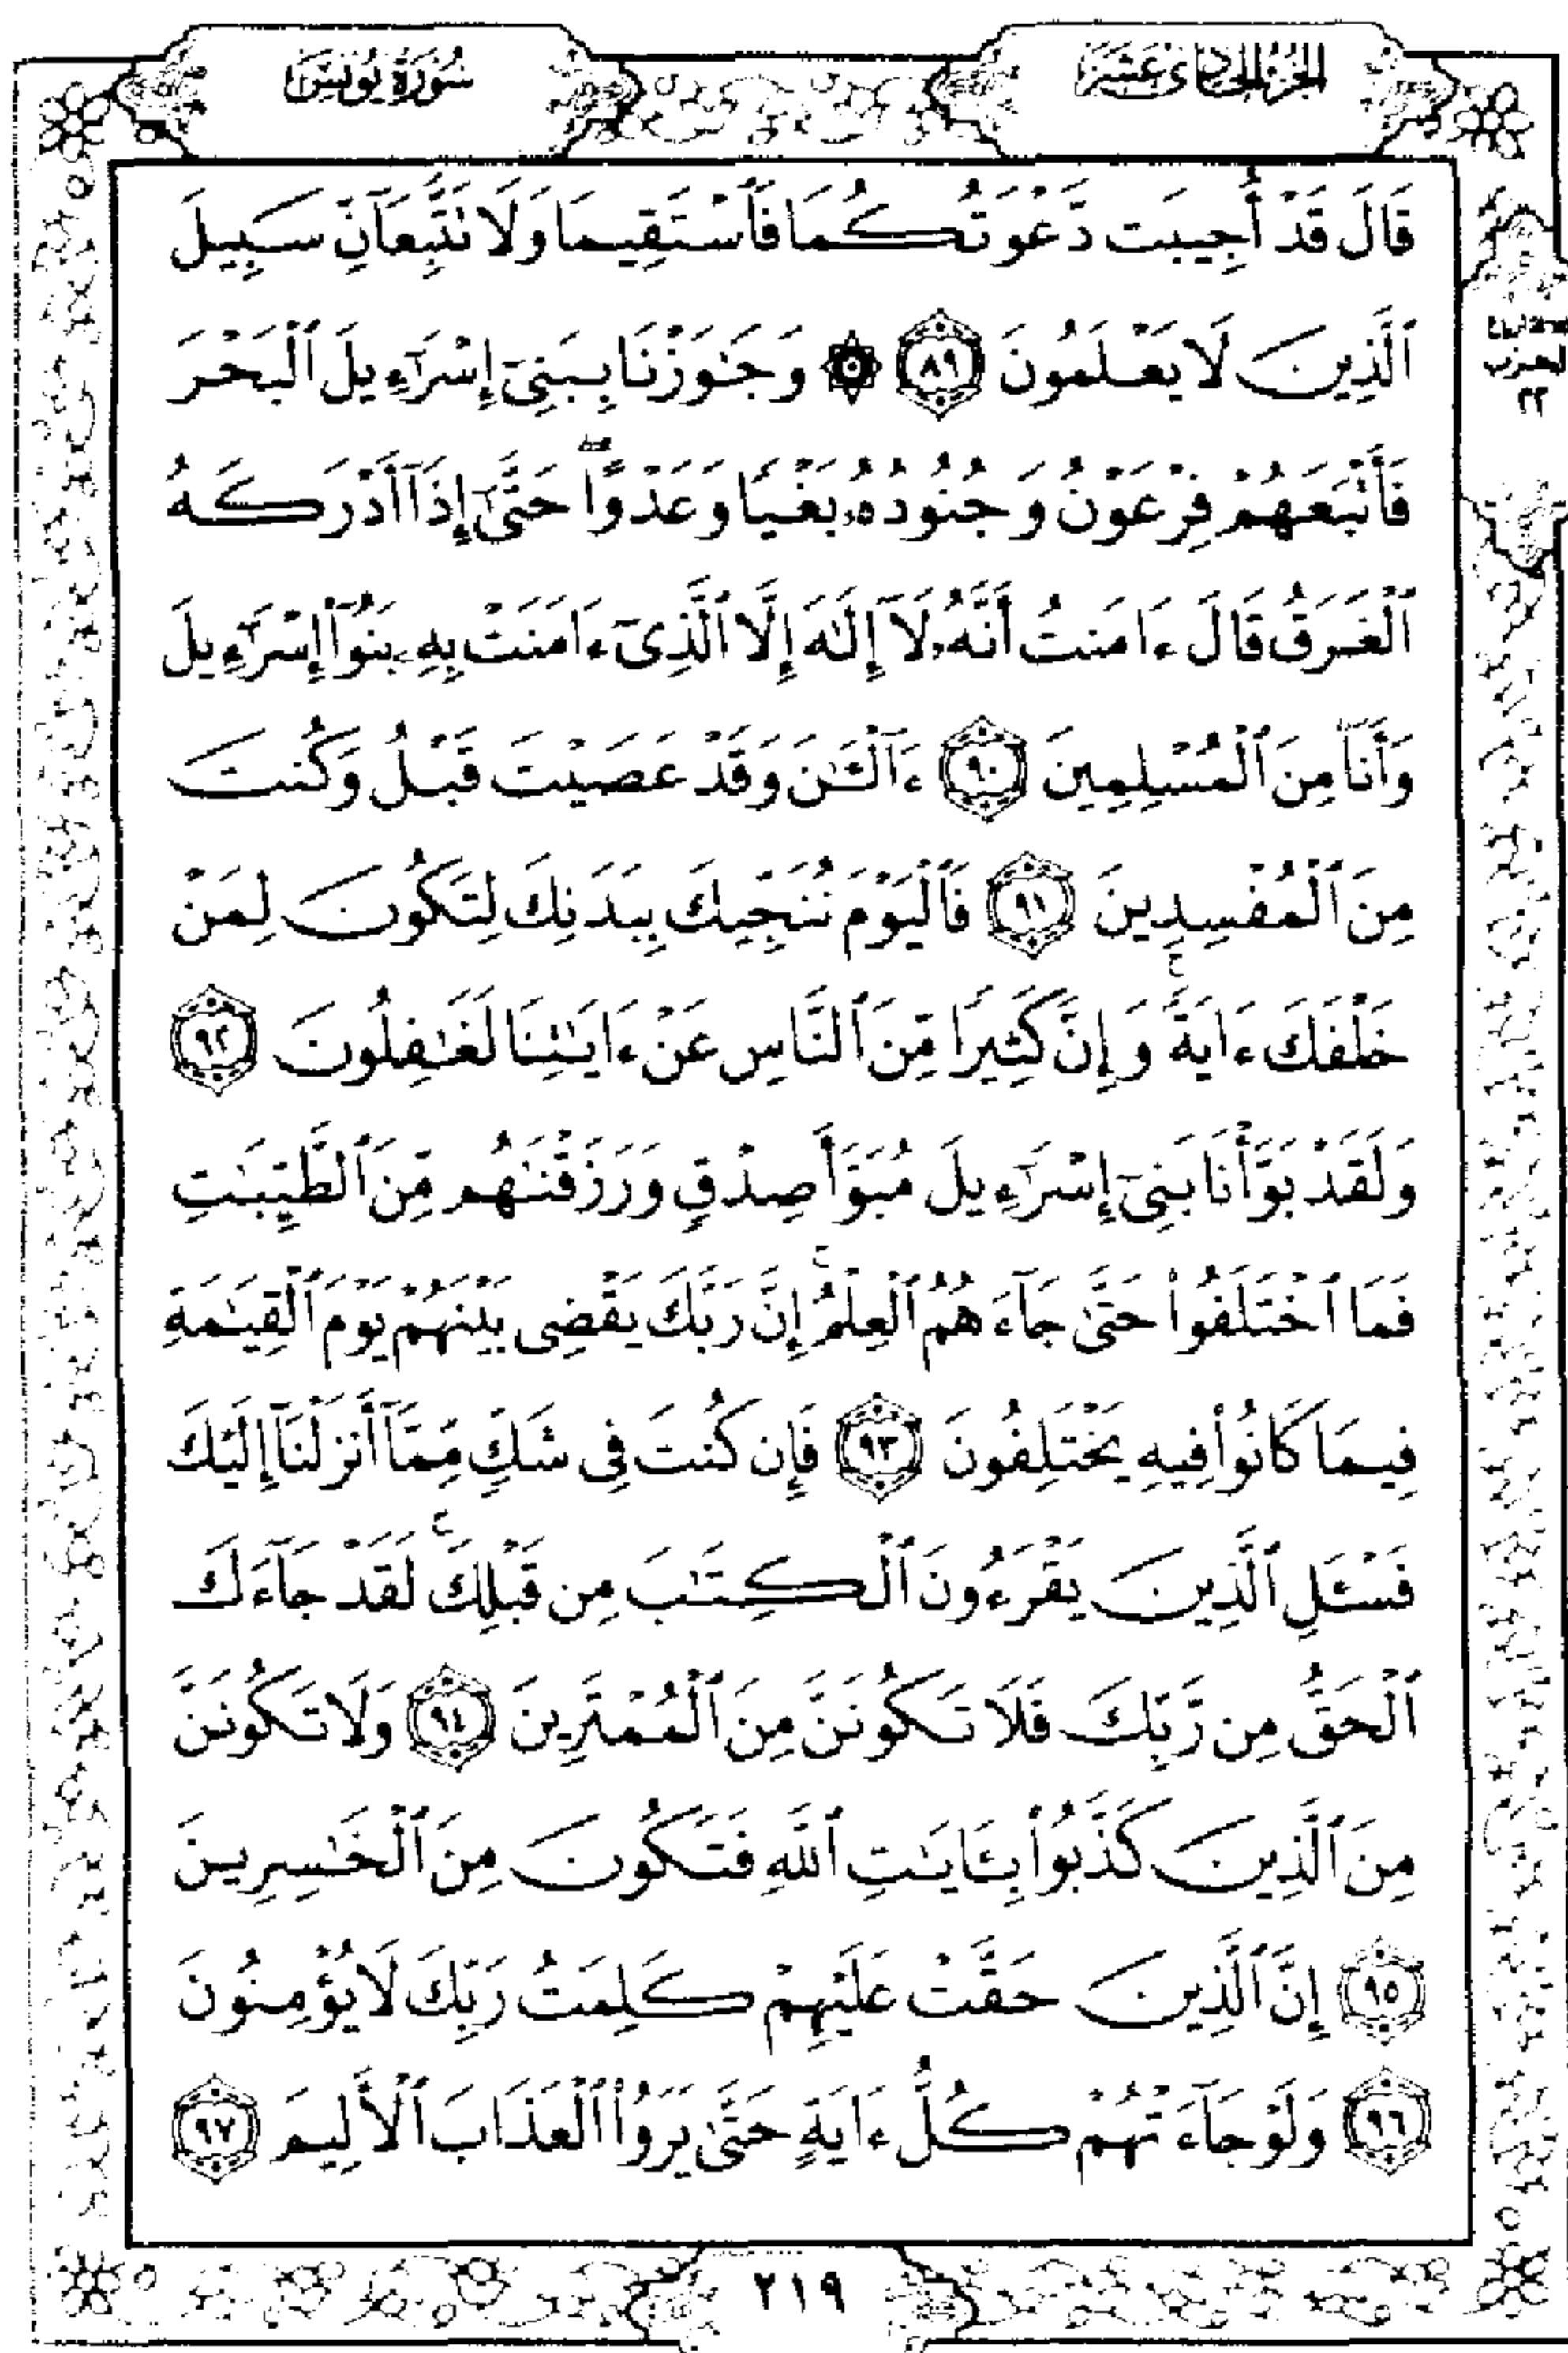 الجزء الحادي عشر
سورة يونس
قَالَ قَدْ أُجِيبَت دَّعْوَتُكُمَا فَٱسْتَقِيمَا وَلَا تَتَّبِعَآنِّ سَبِيلَ
ٱلَّذِينَ لَا يَعْلَمُونَ ٨٩ ۞ وَجَٰوَزْنَا بِبَنِىٓ إِسْرَٰٓءِيلَ ٱلْبَحْرَ
فَأَتْبَعَهُمْ فِرْعَوْنُ وَجُنُودُهُۥ بَغْيًا وَعَدْوًا ۖ حَتَّىٰٓ إِذَآ أَدْرَكَهُ
ٱلْغَرَقُ قَالَ ءَامَنتُ أَنَّهُۥ لَآ إِلَٰهَ إِلَّا ٱلَّذِىٓ ءَامَنَتْ بِهِۦ بَنُوٓا۟ إِسْرَٰٓءِيلَ
وَأَنَا۠ مِنَ ٱلْمُسْلِمِينَ ٩٠ ءَآلْـَٰٔنَ وَقَدْ عَصَيْتَ قَبْلُ وَكُنتَ
مِنَ ٱلْمُفْسِدِينَ ٩١ فَٱلْيَوْمَ نُنَجِّيكَ بِبَدَنِكَ لِتَكُونَ لِمَنْ
خَلْفَكَ ءَايَةً ۚ وَإِنَّ كَثِيرًا مِّنَ ٱلنَّاسِ عَنْ ءَايَٰتِنَا لَغَٰفِلُونَ ٩٢
وَلَقَدْ بَوَّأْنَا بَنِىٓ إِسْرَٰٓءِيلَ مُبَوَّأَ صِدْقٍ وَرَزَقْنَٰهُم مِّنَ ٱلطَّيِّبَٰتِ
فَمَا ٱخْتَلَفُوا۟ حَتَّىٰ جَآءَهُمُ ٱلْعِلْمُ ۚ إِنَّ رَبَّكَ يَقْضِى بَيْنَهُمْ يَوْمَ ٱلْقِيَٰمَةِ
فِيمَا كَانُوا۟ فِيهِ يَخْتَلِفُونَ ٩٣ فَإِن كُنتَ فِى شَكٍّ مِّمَّآ أَنزَلْنَآ إِلَيْكَ
فَسْـَٔلِ ٱلَّذِينَ يَقْرَءُونَ ٱلْكِتَٰبَ مِن قَبْلِكَ ۚ لَقَدْ جَآءَكَ
ٱلْحَقُّ مِن رَّبِّكَ فَلَا تَكُونَنَّ مِنَ ٱلْمُمْتَرِينَ ٩٤ وَلَا تَكُونَنَّ
مِنَ ٱلَّذِينَ كَذَّبُوا۟ بِـَٔايَٰتِ ٱللَّهِ فَتَكُونَ مِنَ ٱلْخَٰسِرِينَ
٩٥ إِنَّ ٱلَّذِينَ حَقَّتْ عَلَيْهِمْ كَلِمَتُ رَبِّكَ لَا يُؤْمِنُونَ
٩٦ وَلَوْ جَآءَتْهُمْ كُلُّ ءَايَةٍ حَتَّىٰ يَرَوُا۟ ٱلْعَذَابَ ٱلْأَلِيمَ ٩٧
الحزب
٢٢
٢١٩